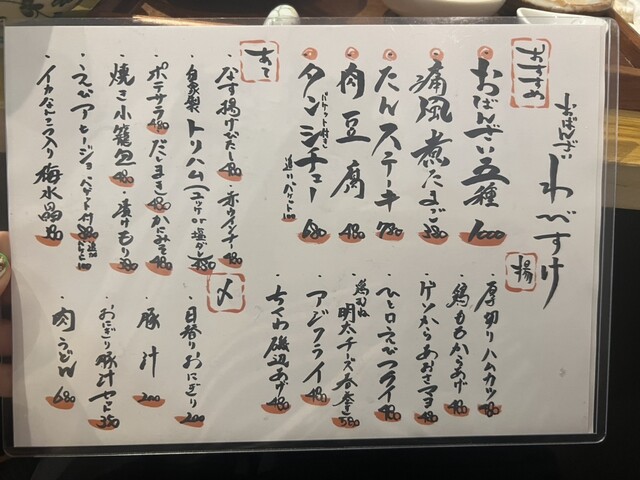 おばんざい わびすけ
おすすめ
おばんざい五種 1000
痛風煮たまご 380
たんステーキ 780
肉豆腐 480
タンシチュー バケット付き 追いバケット100 680
あて
なす揚げだし 480
・赤ウインナー 480
自家製トリハム
ポテサラ 480
・だしまき 480
・かにみそ 480
焼き小籠包 480
・漬けもり 380
えびアヒージョ バケット付
イカなんこつ入り梅水晶
揚
・厚切りハムカツ 480
・鶏ももからあげ 480
・ゲソからあおさマヨ 480
・ひと口えびフライ 480
・鶏むね明太チーズ春巻き 580
・アジフライ 480
・ちくわ磯辺あげ 480
〆
・日替りおにぎり 200
・豚汁 200
・おにぎり豚汁セット 350
・肉うどん 680